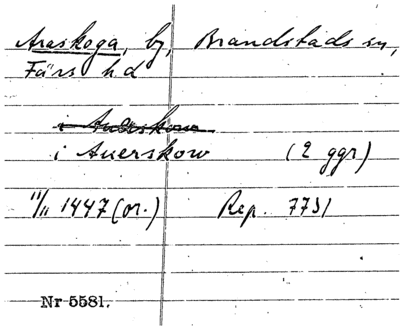 Araskoga, by, Brandstads sn,
Färs hd
i Auerskow
i Auerskow (2 ggr)
11/11 1447 (or.) Rep. 7731
Nr 5581.